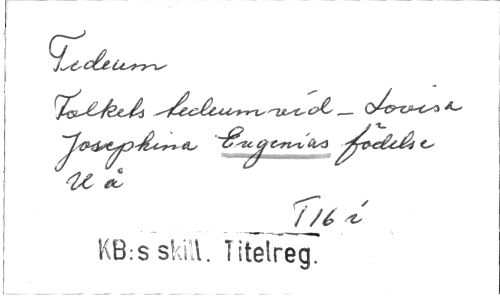 Tedeum
Folkets tedeum vid – Lovisa
Josephina Eugenias födelse
U å
T 16 i
KB:s skill. Titelreg.